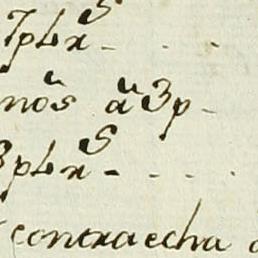 7pLx^s - . .
nos a 3p -
3pLx^s - . . .
contraecha